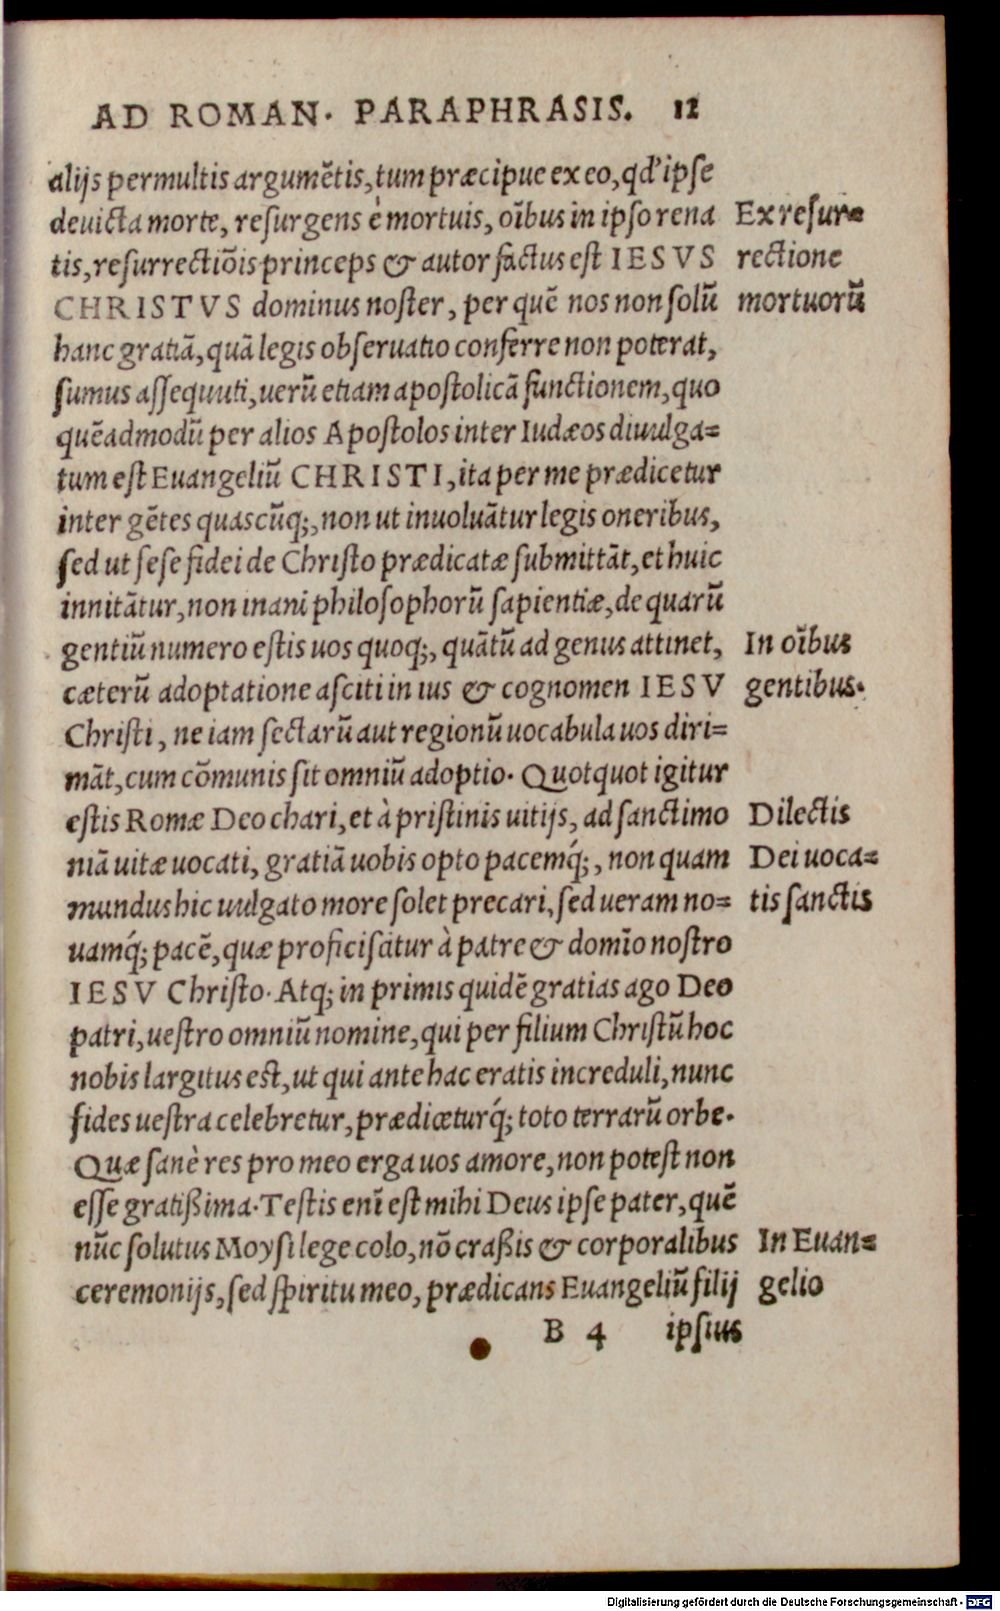 AD ROMAN. PARAPHRASIS. 12
alijs permultis argumẽtis, tum præcipue ex eo, qđ ipse
deuicta morte, resurgens è mortuis, oĩbus in ipso rena
Ex resur=
tis, resurrectiõis princeps & autor factus est IESVS
rectione
CHRISTVS dominus noster, per quẽ nos non solũ
mortuorũ
hanc gratiã, quã legis obseruatio conferre non poterat,
sumus assequuti, uerũ etiam apostolicã functionem, quo
quẽadmodũ per alios Apostolos inter Iudæos diuulga=
tum est Euangeliũ CHRISTI, ita per me prædicetur
inter gẽtes quascũq;, non ut inuoluãtur legis oneribus,
sed ut sese fidei de Christo prædicatæ submittãt, et huic
innitãtur, non inani philosophorũ sapientiæ, de quarũ
gentiũ numero estis uos quoq;, quãtũ ad genus attinet,
In oĩbus
cæterũ adoptatione asciti in ius & cognomen IESV
gentibus.
Christi, ne iam sectarũ aut regionũ uocabula uos diri=
mãt, cum cõmunis sit omniũ adoptio. Quotquot igitur
estis Romæ Deo chari, et à pristinis uitijs, ad sanctimo
Dilectis
niã uitæ uocati, gratiã uobis opto pacemq́;, non quam
Dei uoca=
mundus hic uulgato more solet precari, sed ueram no=
tis sanctis
uamq́; pacẽ, quæ proficiscitur à patre & domĩo nostro
IESV Christo. Atq; in primis quidẽ gratias ago Deo
patri, uestro omniũ nomine, qui per filium Christũ hoc
nobis largitus est, ut qui ante hac eratis increduli, nunc
fides uestra celebretur, prædiceturq́; toto terrarũ orbe.
Quæ sanè res pro meo erga uos amore, non potest non
esse gratißima. Testis enĩ est mihi Deus ipse pater, quẽ
nũc solutus Moysi lege colo, nõ craßis & corporalibus
In Euan=
ceremonijs, sed spiritu meo, prædicans Euangeliũ filij
gelio
B 4 ipsius
Digitalisierung gefördert durch die Deutsche Forschungsgemeinschaft - DFG